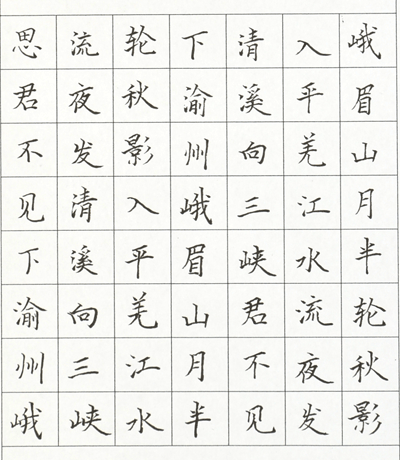 峨眉山月半轮秋影
入平羌江水流夜发
清溪向三峡君不见
下渝州峨眉山月半
轮秋影入平羌江水
流夜发清溪向三峡
思君不见下渝州峨